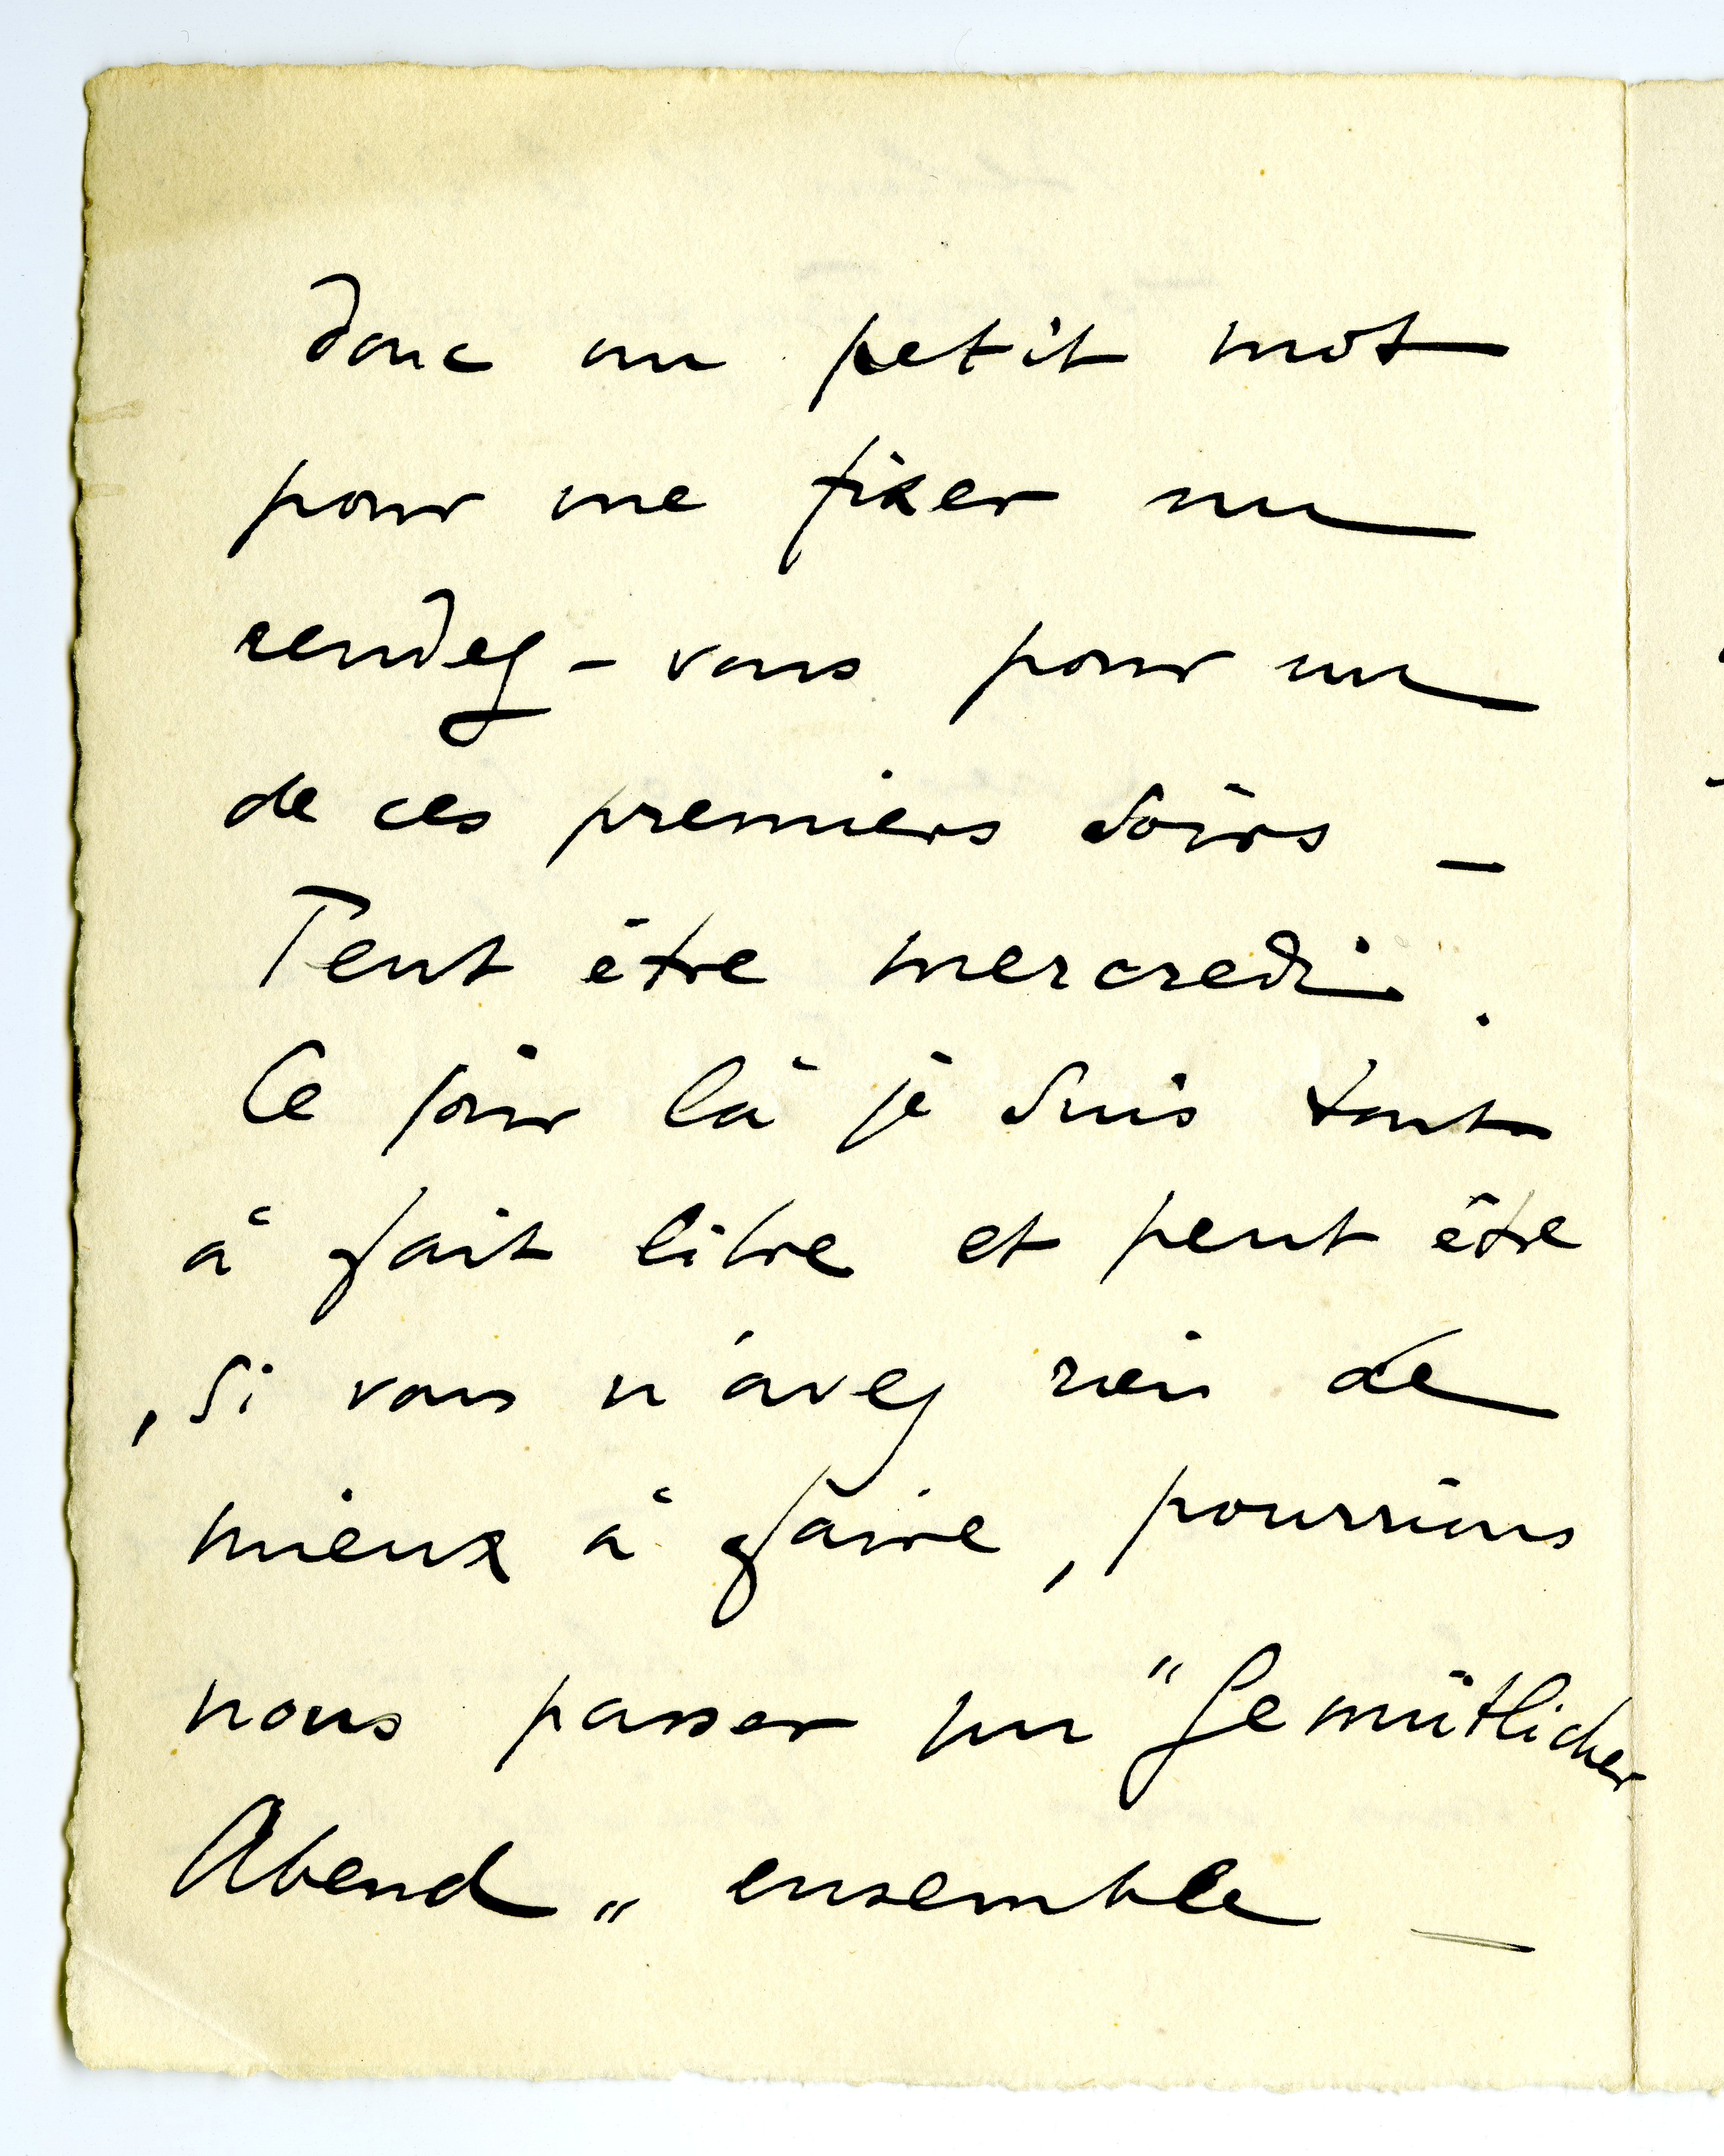 donc un petit mot
pour me fixer un
rendez-vous pour un
de ces premiers soirs _
Peut être mercredi.
Ce soir là je suis tout
à fait libre et peut être
, si vous n'avez rien de
mieux à faire, pourrions
nous passer un "Gemütlicher
Abend" ensemble _